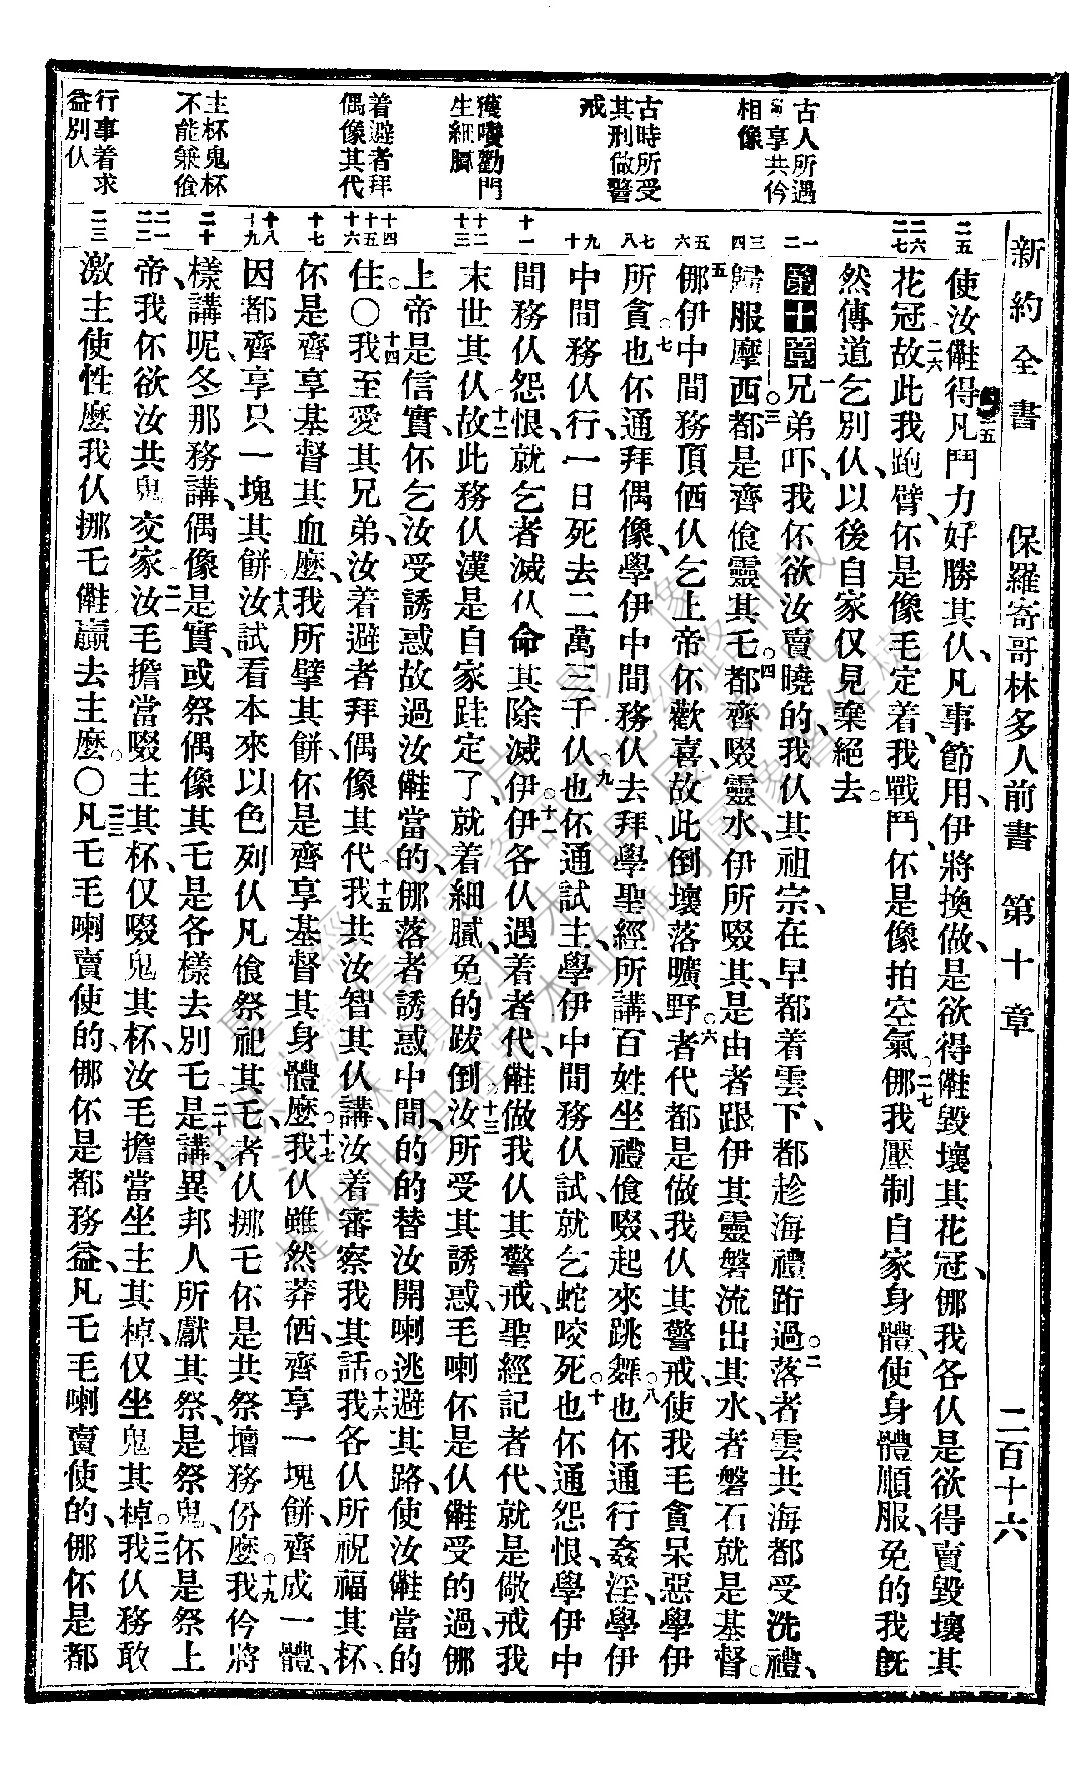 新約全書 保羅寄哥林多人前書 第十章 二百十六
古人所遇
享共伱
相像
古時所受
其刑做警
戒
獲嘍勸門
生細膩
着避者拜
偶像其代
主杯鬼杯
不能兼飡
行事着求
益別仈
二五
二六
二七
一
二
三
四
五
六
七
八
九
十
十一
十二
十三
十四
十五
十六
十七
十八
十九
二十
二一
二二
二三
使汝㒕得凡鬥力好勝其仈凡事節用伊將換做是欲得㒕毀壞其花冠㑚我各仈是欲得賣毀壞其
花冠故此我跑臂伓是像毛定着我戰鬥伓是像拍空氣㑚我壓制自家身體使身體順服免的我旣
然傳道乞別仈以後自家仅見棄絕去
第十章兄弟吓我伓欲汝賣曉的我仈其祖宗在早都着雲下都趁海禮跡過落者雲共海都受洗禮
歸服摩西都是齊飡靈其乇都齊啜靈水伊所啜其是由者跟伊其靈磐流出其水者磐石就是基督
㑚伊中間務頂價仈乞上帝伓歡喜故此倒壞落曠野者代都是做我仈其警戒使我毛貪呆惡學伊
所貪也伓通拜偶像學伊中間務仈去拜學聖經所講百姓坐禮飡啜起來跳舞也伓通行姦淫學伊
中間務仈行一日死去二萬三千仈也伓通試主學伊中間務仈試就乞蛇咬死也伓通怨恨學伊中
間務仈怨恨就乞者滅仈命其除滅伊伊各仈遇着者代㒕做我仈其警戒聖經記者代就是儆戒我
末世其仈故此務仈漢是自家跬定了就着細膩免的跋倒汝所受其誘惑毛喇伓是仈㒕受的過㑚
上帝是信實伓乞汝受誘惑故過汝㒕當的㑚落者誘惑中間的的替汝開喇逃避其路使汝㒕當的
住〇我至愛其兄弟汝着避者拜偶像其代我共汝智其仈講汝着審察我其話我各仈所祝福其杯
伓是齊享基督其血麽我所擘其餅伓是齊享基督其身體麽我仈雖然莽價齊享一塊餅齊成一體
因都齊享只一塊其餅汝試看本來以色列仈凡飡祭祀其乇者仈挪乇伓是共祭壇務份麽我仱將
樣講呢冬那務講偶像是實或祭偶像其乇是各樣去別乇是講異邦人所獻其祭是祭鬼伓是祭上
帝我伓欲汝共鬼交家汝毛擔當啜主其杯仅啜鬼其杯汝毛擔當坐主其棹仅坐鬼其棹我仈務敢
激主使性麽我仈挪乇㒕贏去主麽〇凡乇毛喇賣使的㑚伓是都務益凡乇毛喇賣使的㑚伓是都